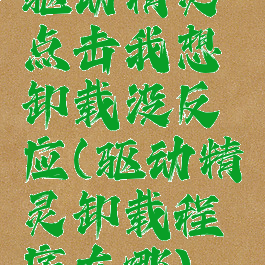 驱动精灵
点击我想
卸载没反
应(驱动精
灵卸载程
序在哪)